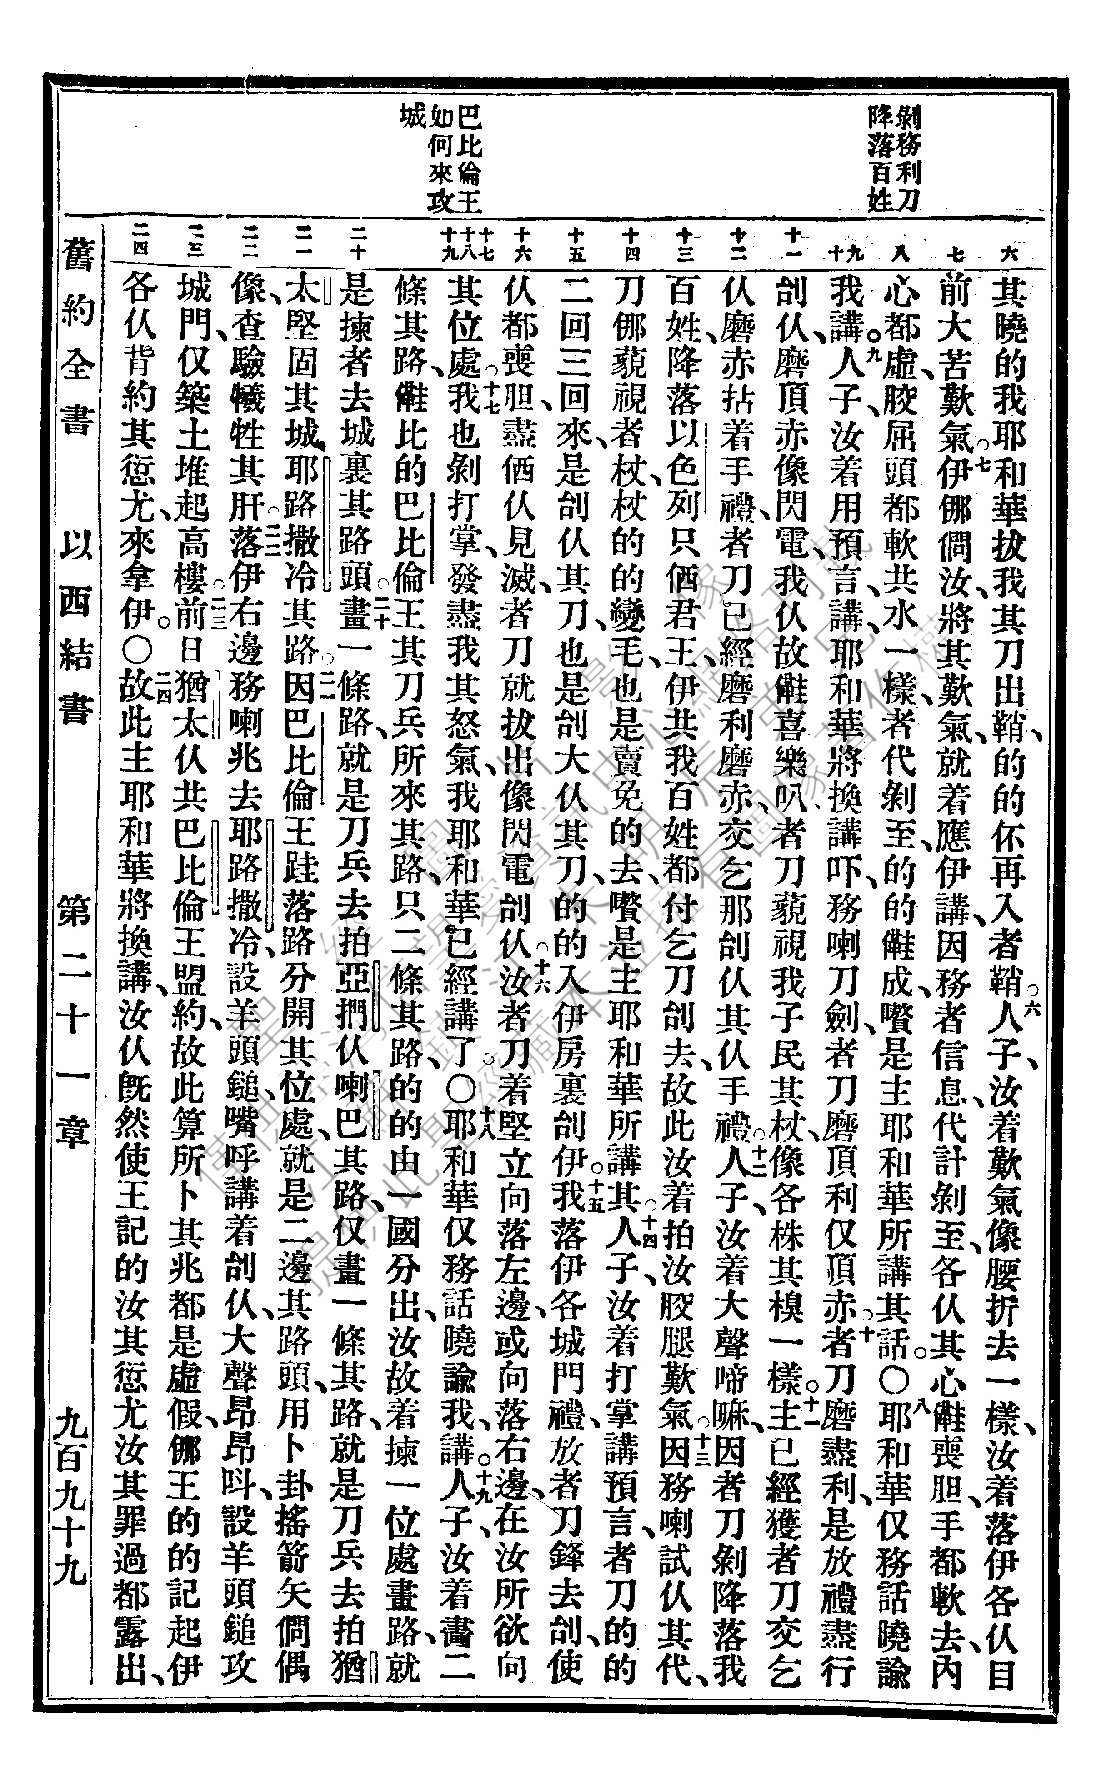 剝務利刀
降落百姓
巴比倫王
如何來攻
城
六
七
八
九
十
十一
十二
十三
十四
十五
十六
十七
十八
十九
二十
二一
二二
二三
二四
其曉的我耶和華拔我其刀出鞘、的的伓再入者鞘。六人子、汝着歎氣、像腰折去一樣、汝着落伊各仈目
前大苦歎氣。七伊㑚倜汝、將其歎氣、就着應伊講、因務者信息、代計剝至、各仈其心㒕喪胆、手都軟去、內
心都虛、胶屈頭都軟共水一樣、者代剝至、的的㒕成、嚽是主耶和華所講其話。〇八耶和華仅務話曉諭
我講、九人子、汝着用預言、講耶和華將換講吓、務喇刀劍、者刀磨頂利仅頂赤。十者刀磨盡利、是放禮盡行
刣仈、磨頂赤像閃電、我仈故㒕喜樂叭、者刀藐視我子民其杖、像各株其模一樣。十一主已經獲者刀交乞
仈磨赤拈着手禮、者刀已經磨利磨赤、交乞那刣仈其仈手禮。十二人子、汝着大聲啼嘛、因者刀剝降落我
百姓、降落以色列只㒑君王、伊共我百姓都付乞刀刣去、故此汝着拍汝胶腿歎氣。十三因務喇試仈其代、
刀㑚藐視者杖、杖的的變毛、也是賣免的去、嚽是主耶和華所講其。十四人子、汝着打掌講預言、者刀的的
二回三回來、是刣仈其刀、也是刣大仈其刀、的的入伊房裏刣伊。十五我落伊各城門禮、放者刀鋒去刣、使
仈都喪胆、盡㒑仈見滅、者刀就拔出像閃電刣仈。十六汝者刀着堅立、向落左邊、或向落右邊、在汝所欲向
其位處。十七我也剝打掌、發盡我其怒氣、我耶和華已經講了。〇十八耶和華仅務話曉諭我、講。十九人子、汝着畵二
條其路、㒕比的巴比倫王其刀兵所來其路、只二條其路、的的由一國分出、汝故着揀一位處畫路、就
是揀者去城裏其路頭。二十畫一條路、就是刀兵去拍亞捫仈喇巴其路、仅畫一條其路、就是刀兵去拍猶
太堅固其城、耶路撒冷其路。二一因巴比倫王跬落路分開其位處、就是二邊其路頭、用卜卦搖箭矢倜偶
像、查驗犧牲其肝。二二落伊右邊務喇兆去耶路撒冷、設羊頭鎚、嘴呼講着刣仈、大聲昂昂㕰、設羊頭鎚攻
城門、仅築土堆起高樓。二三前日猶太仈共巴比倫王盟約、故此算所卜其兆都是虛假、㑚王的的記起伊
各仈背約其愆尤、來拿伊。〇二四故此主耶和華將換講、汝仈旣然使王記的汝其愆尤、汝其罪過都露出、
舊約全書 以西結書 第二十一章 九百九十九